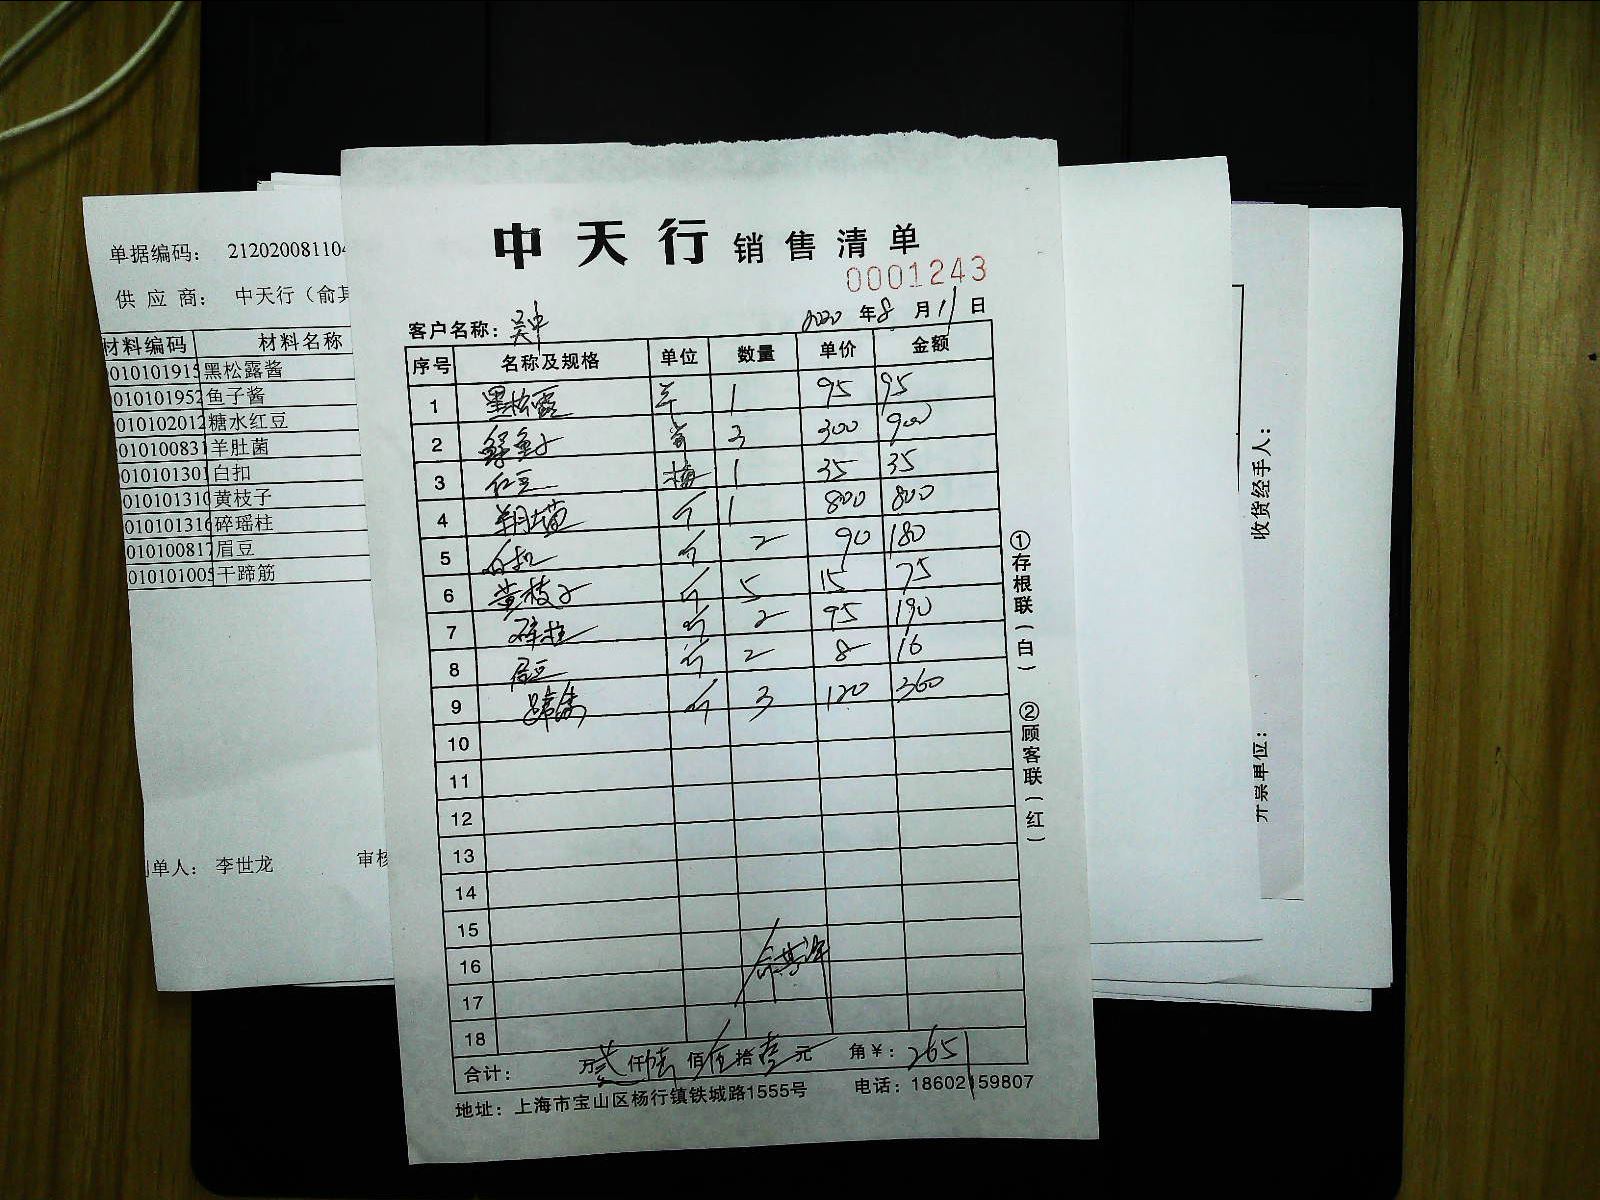 单据编码: 212020081104
供 应 商: 中天行（俞其
材料编码 材料名称
010101915 黑松露酱
010101952 鱼子酱
010102012 糖水红豆
010100831 羊肚菌
010101301 白扣
010101310 黄枝子
010101316 碎瑶柱
010100817 眉豆
010101005 干蹄筋
制单人: 李世龙 审核
中天行 销售清单
0001243
客户名称: 吴中 2020 年 8 月 11 日
序号 名称及规格 单位 数量 单价 金额
1 黑松露 1 95 95
2 鲟鱼子 3 300 900
3 红豆 1 35 35
4 羊肚菌 斤 1 800 800
5 白扣 斤 2 90 180
6 黄枝子 斤 5 15 75
7 碎柱 斤 2 95 190
8 眉豆 斤 2 8 16
9 蹄筋 斤 3 120 360
10
11
12
13
14
15
16
17
18
合计: 万 贰 仟 陆 佰 伍 拾 壹 元 角 ¥: 2651
地址: 上海市宝山区杨行镇铁城路1555号 电话: 18602159807
①存根联(白) ②顾客联(红)
收货经手人:
开票单位: